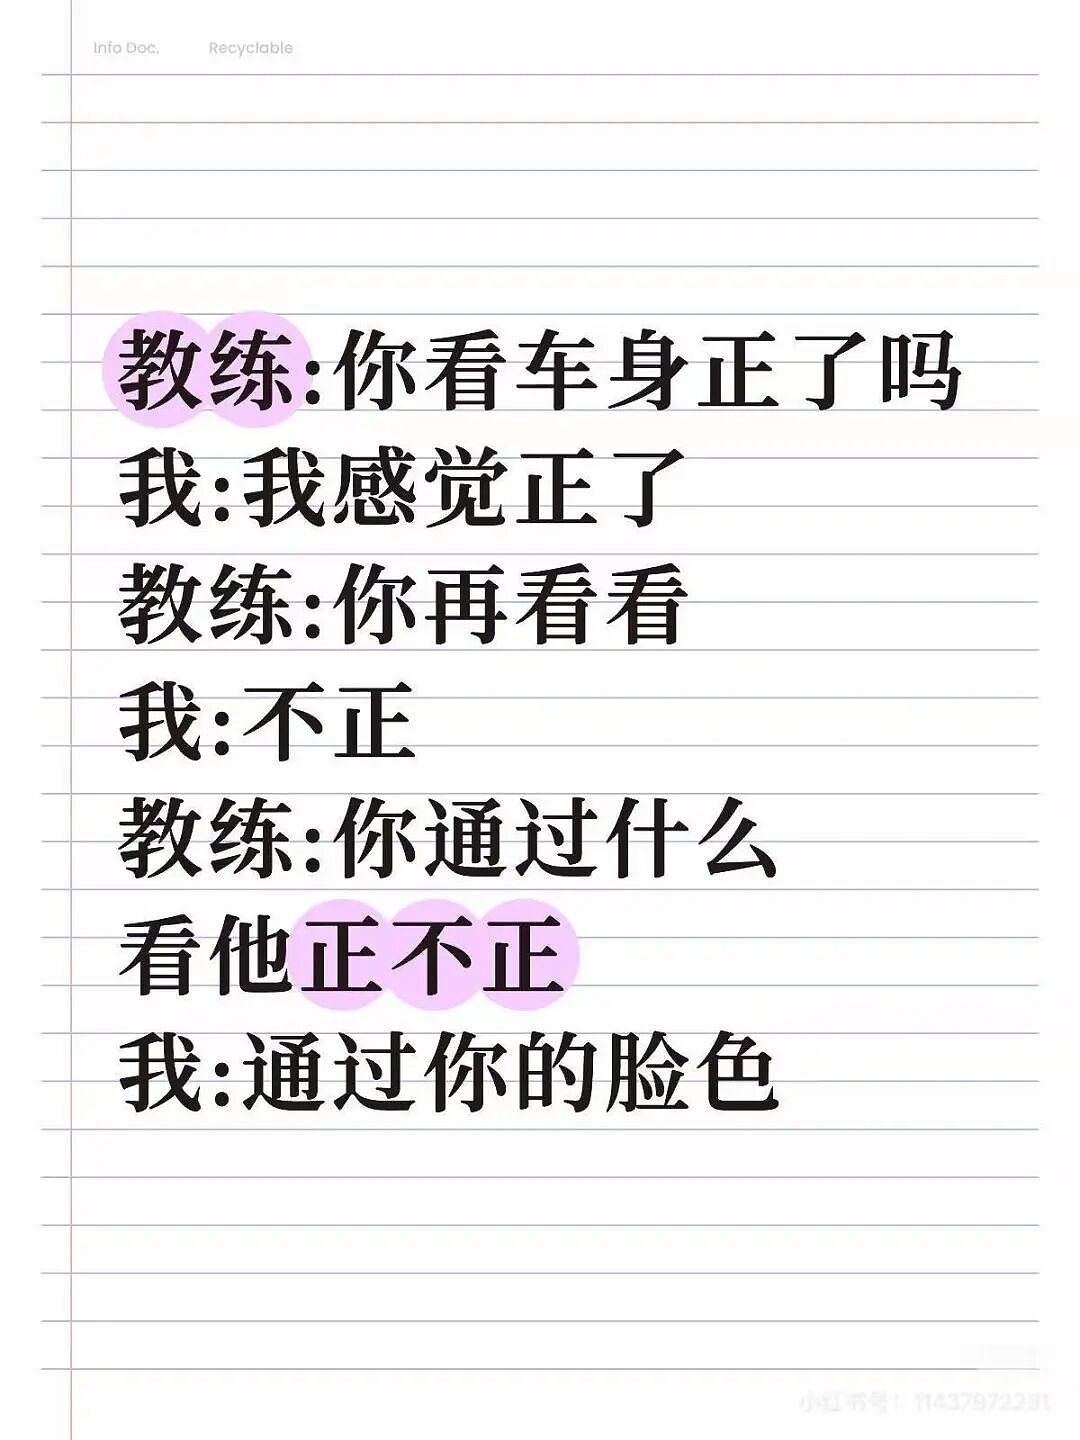 Info Doc. Recyclable
教练:你看车身正了吗
我:我感觉正了
教练:你再看看
我:不正
教练:你通过什么
看他正不正
我:通过你的脸色
小红书号: 11437972291